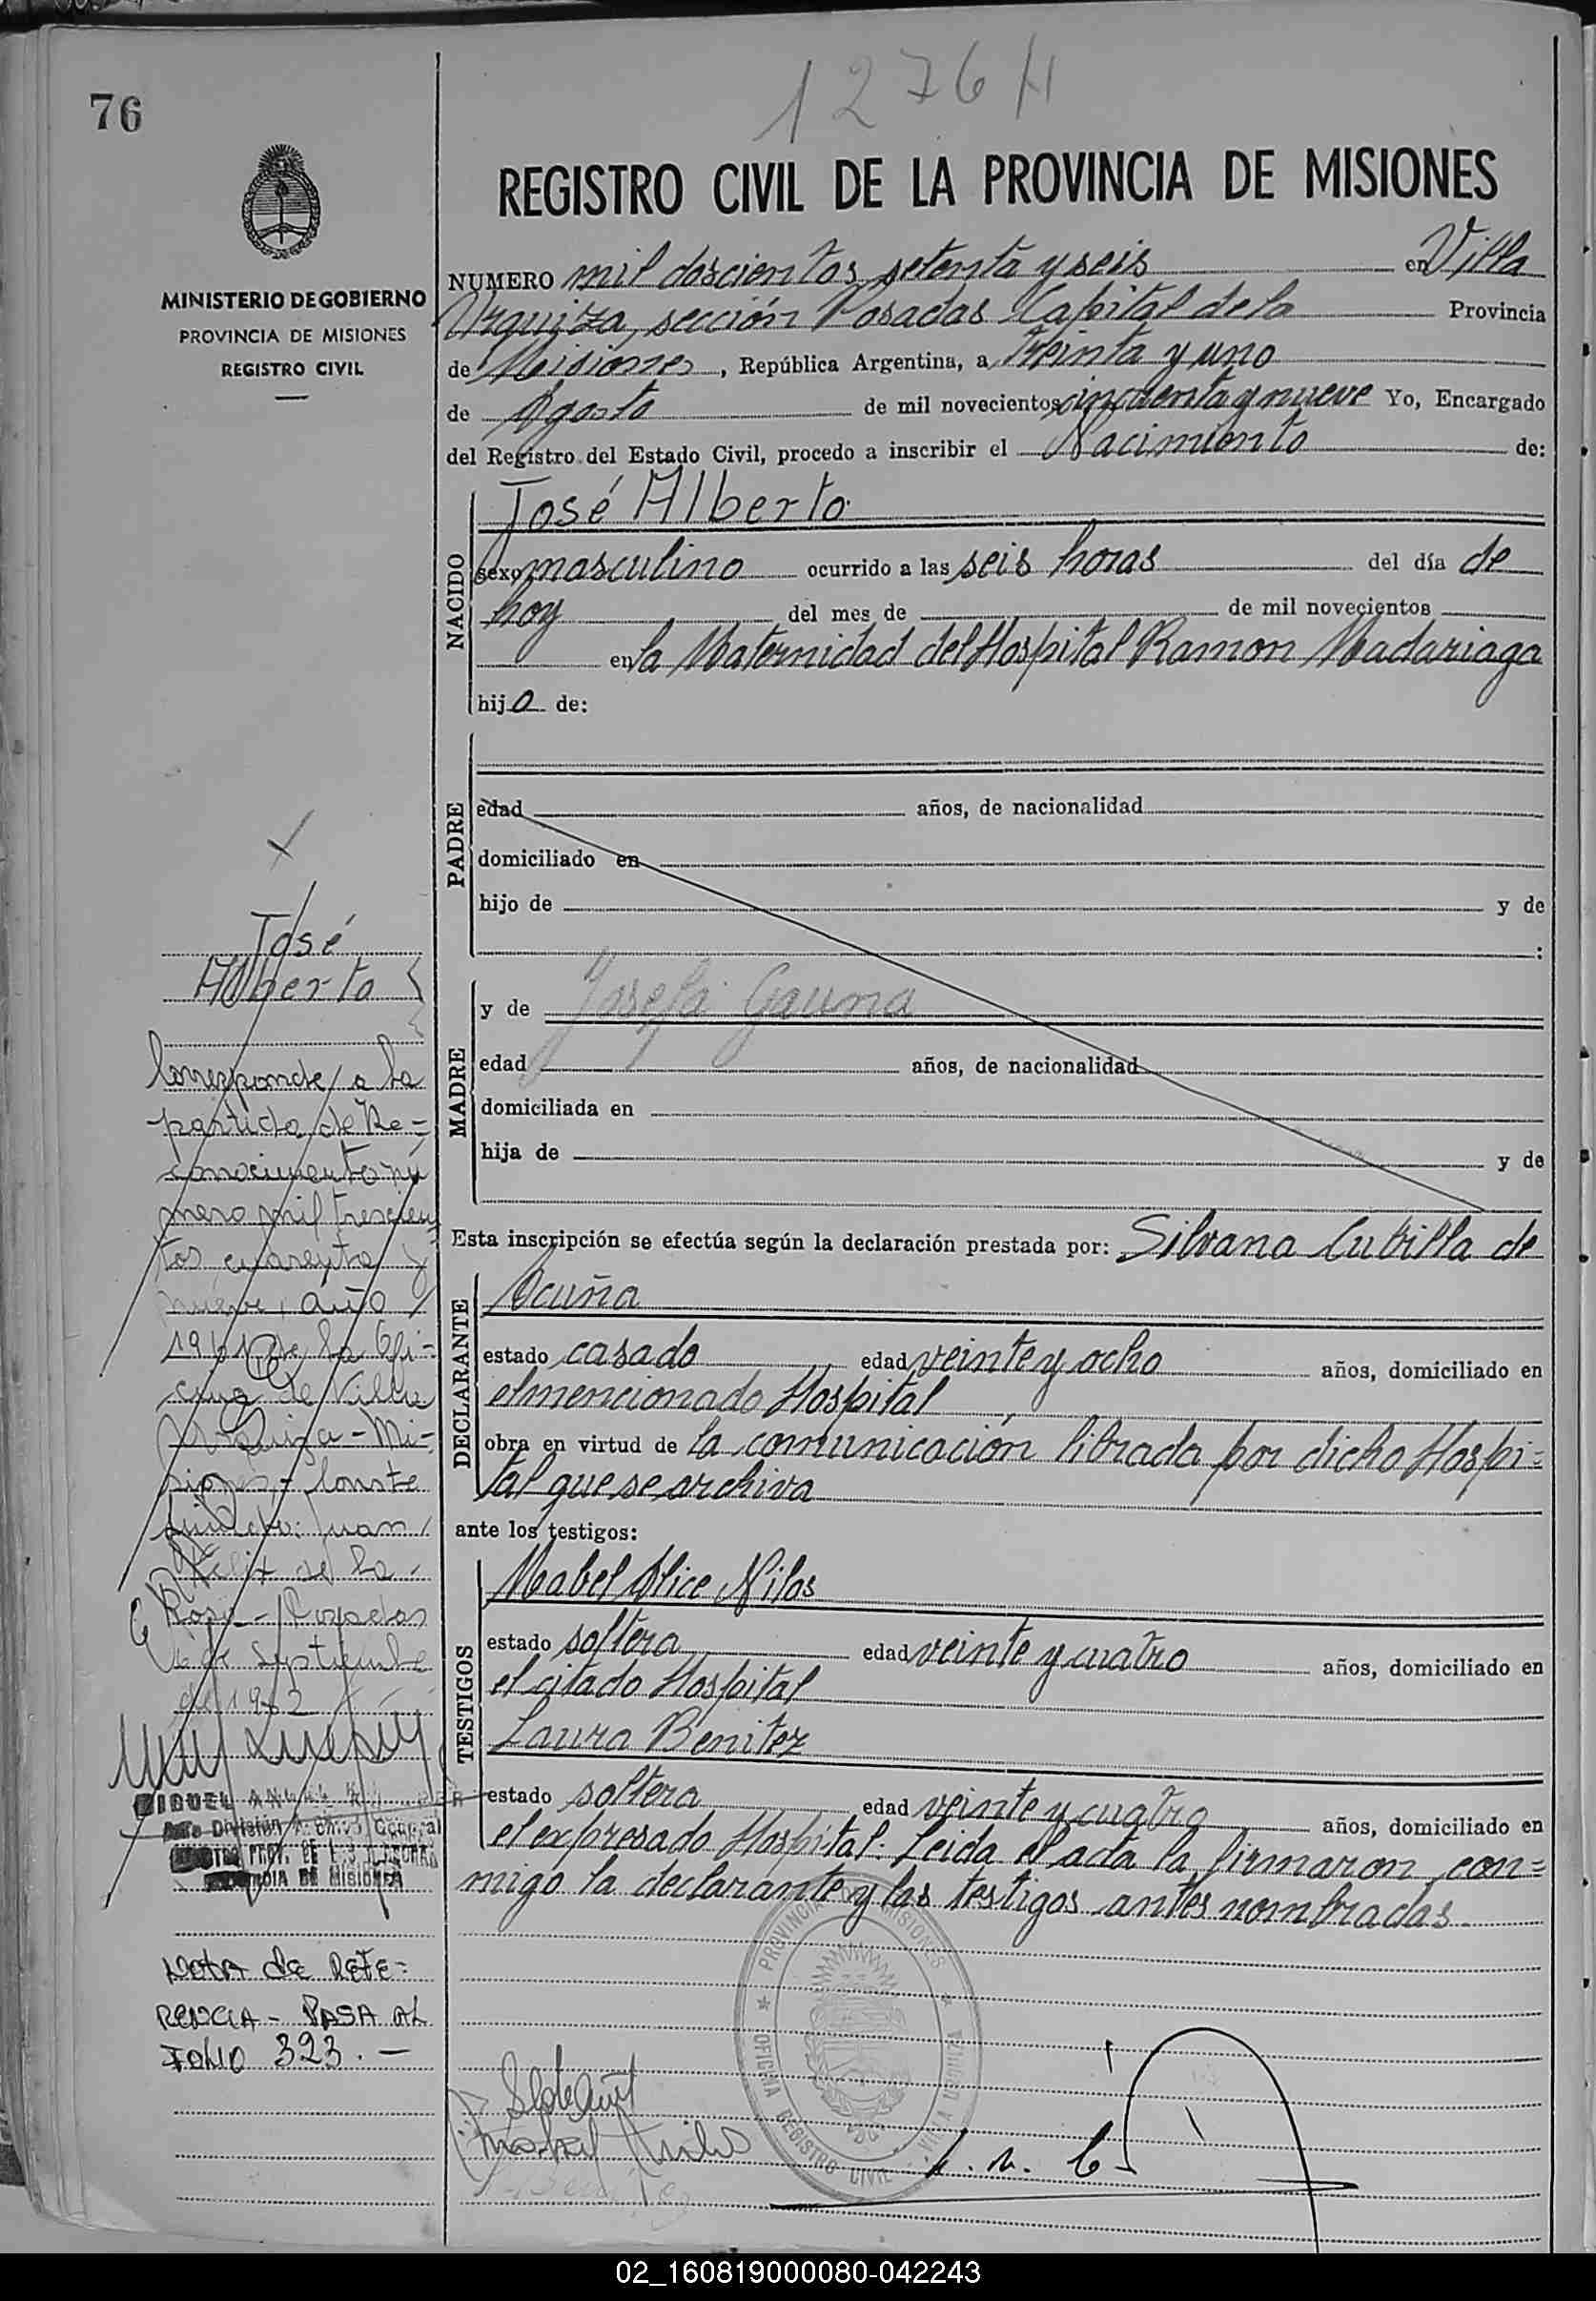 76
1276 H
REGISTRO CIVIL DE LA PROVINCIA DE MISIONES
MINISTERIO DE GOBIERNO
PROVINCIA DE MISIONES
REGISTRO CIVIL
NUMERO mil doscientos setenta y seis en Villa
Urquiza, sección Posadas Capital de la Provincia
de Misiones, República Argentina, a Treinta y uno
de Agosto de mil novecientos cincuenta y nueve Yo, Encargado
del Registro del Estado Civil, procedo a inscribir el Nacimiento de:
NACIDO
José Alberto
sexo masculino ocurrido a las seis horas del día de
hoy del mes de de mil novecientos
en la Maternidad del Hospital Ramon Madariaga
hijo de:
PADRE
edad años, de nacionalidad
domiciliado en
hijo de y de
:
MADRE
y de Josefa Gauna
edad años, de nacionalidad
domiciliada en
hija de y de
Esta inscripción se efectúa según la declaración prestada por: Silvana Cubilla de
DECLARANTE
Acuña
estado casado edad veinte y ocho años, domiciliado en
el mencionado Hospital
obra en virtud de la comunicación librada por dicho Hospi=
tal que se archiva
ante los testigos:
TESTIGOS
Mabel Alice Nilos
estado soltera edad veinte y cuatro años, domiciliado en
el citado Hospital
Laura Benitez
estado soltera edad veinte y cuatro años, domiciliado en
el expresado Hospital. Leida el acta la firmaron con=
migo la declarante y las testigos antes nombradas
PROVINCIA DE MISIONES
OFICINA REGISTRO CIVIL
VILLA URQUIZA
José
Alberto
Corresponde a la
partida de Re=
conocimiento nú
mero mil trescien
tos cuarenta y
nueve, año
de la Ofi=
cina de Villa
Urquiza - Mi-
siones - Conste
Juan
Felix de la
Rosa - Posadas
6 de Septiembre
de
MIGUEL ANGEL
División General
PROV. DE LAS PERSONAS
DE MISIONES
NOTA DE REFE=
RENCIA - PASA AL
FOLIO 323. —
02_160819000080-042243